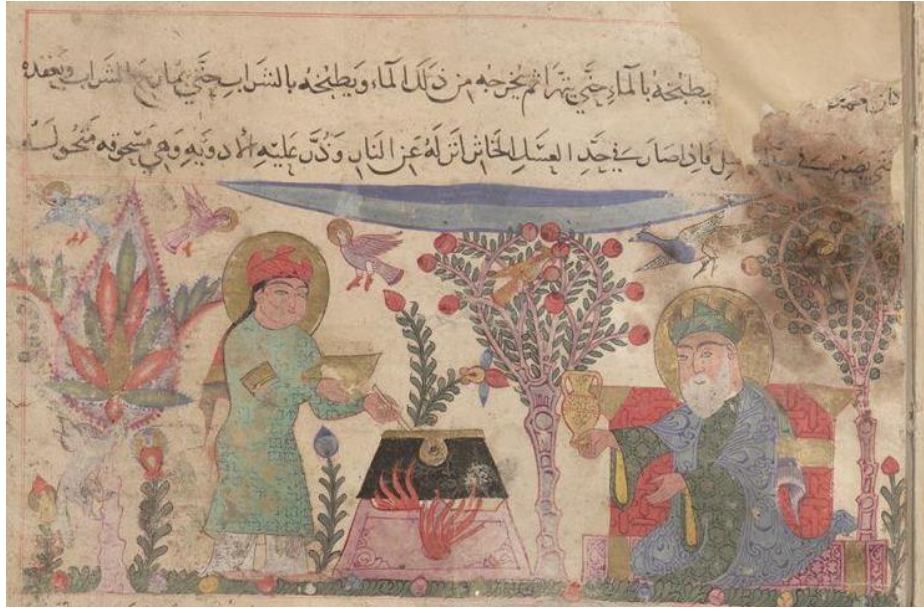 يطبخه بالماء حتى يتهرا ثم يخرجه من ذلك الماء ويطبخه بالشراب حتى يمازج الشراب ويعقده
يصير في فاذا صار في حد العسل الخاثر انزله عن النار وذر عليه الادويه وهي مسحوقه منخوله